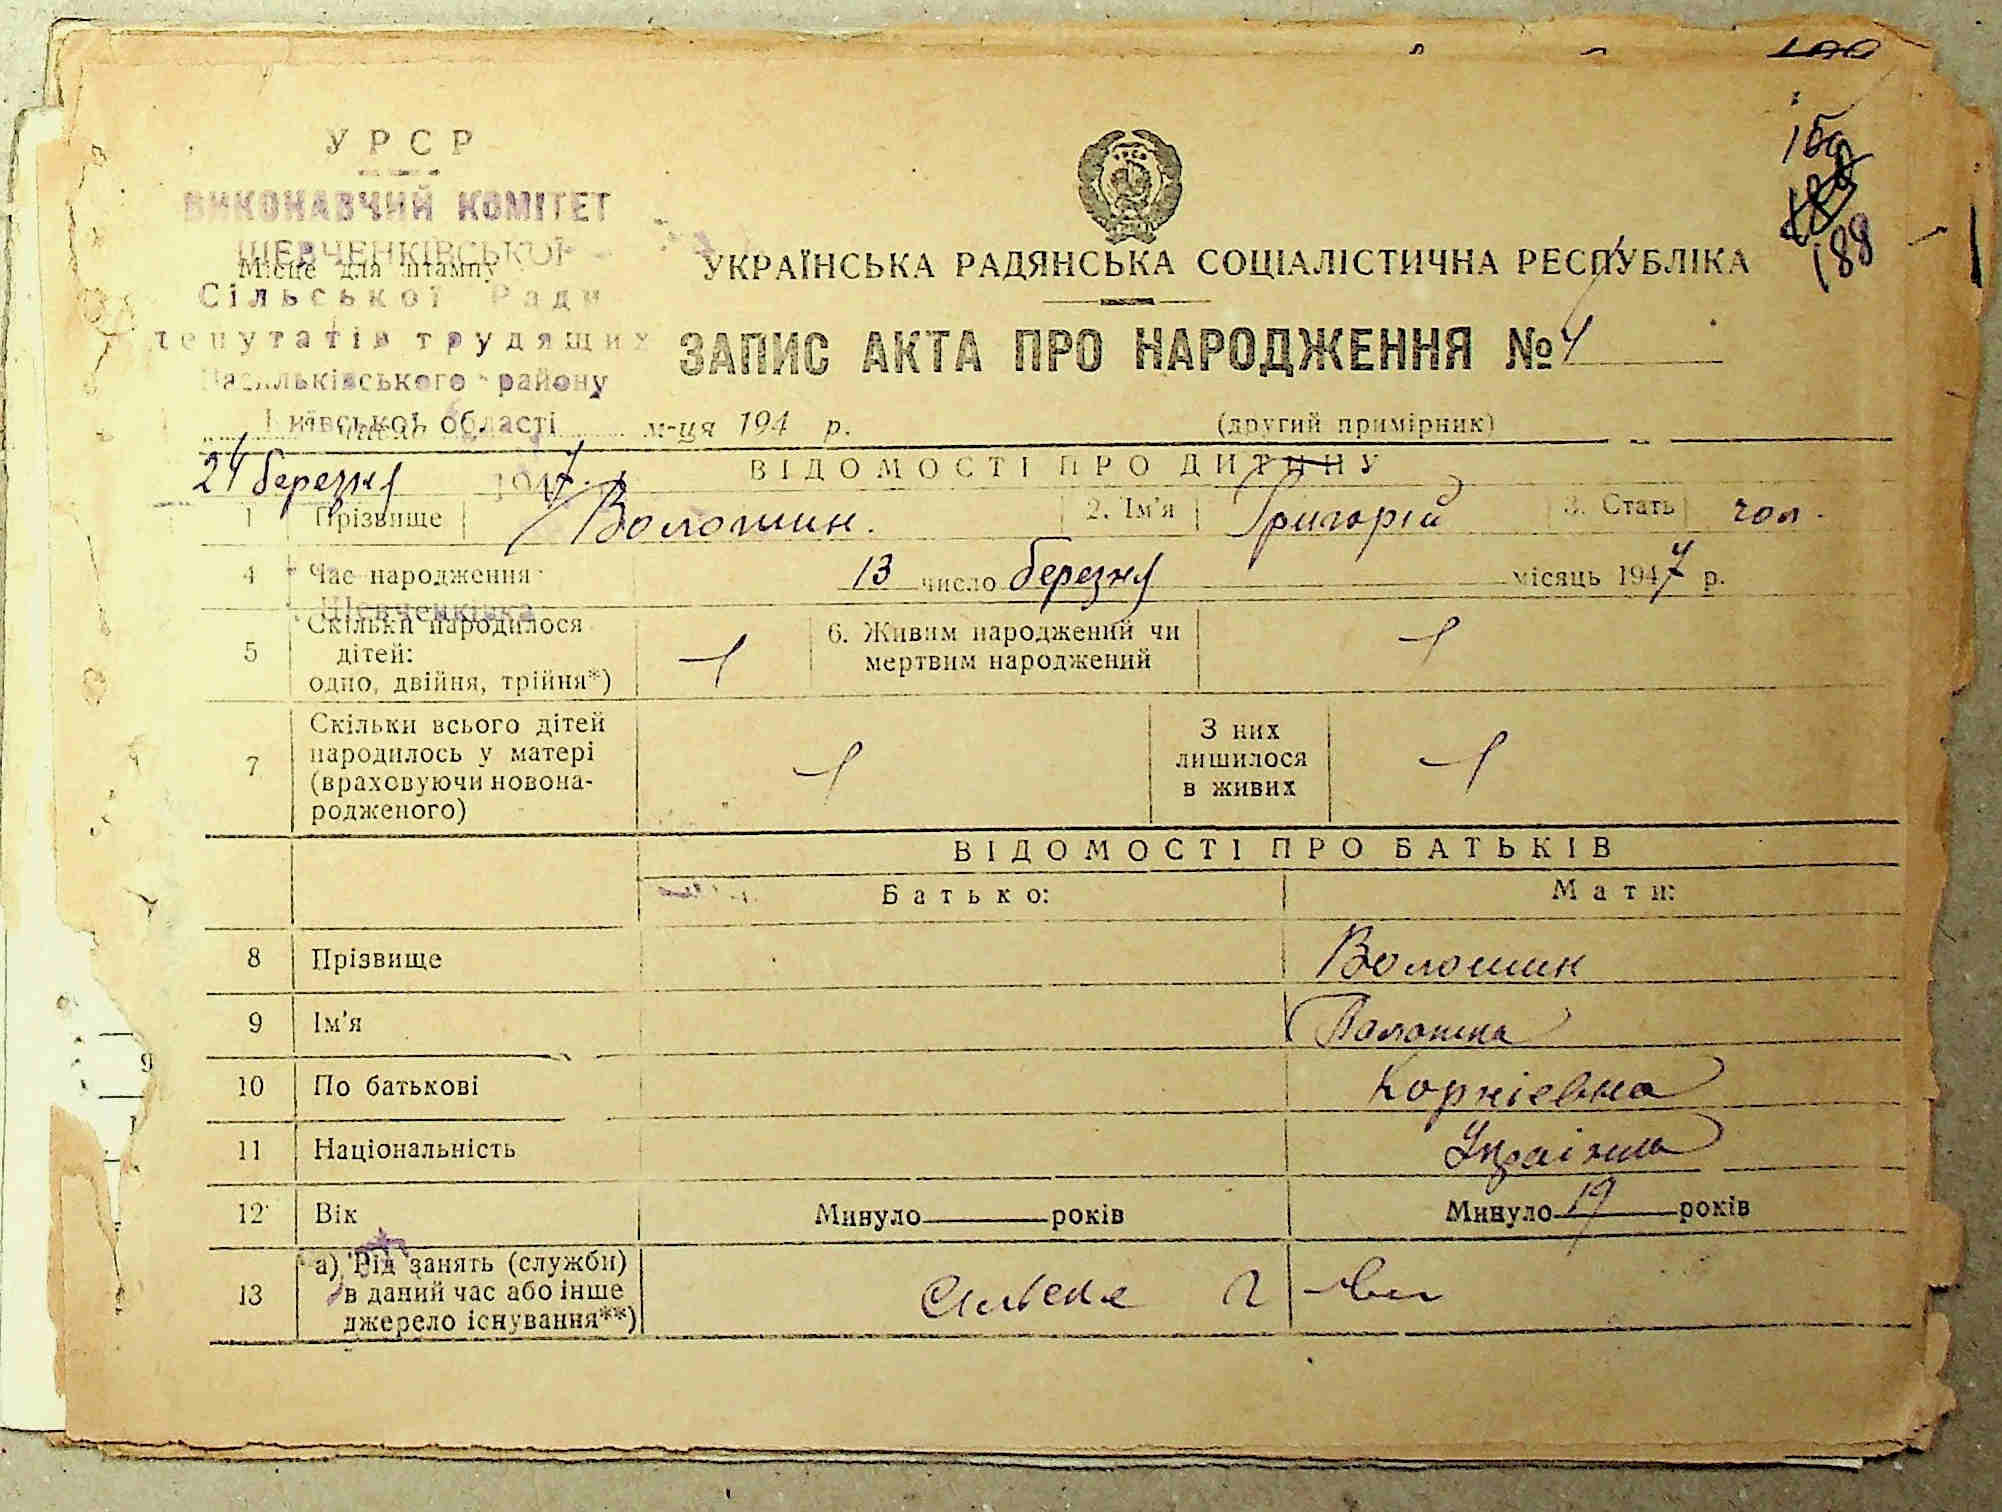 У Р С Р
ВИКОНАВЧИЙ КОМІТЕТ
ШЕВЧЕНКІВСЬКОЇ
Місце для штампу
Сільської Ради
депутатів трудящих
Васильківського району
Київської області
150
188
УКРАЇНСЬКА РАДЯНСЬКА СОЦІАЛІСТИЧНА РЕСПУБЛІКА
ЗАПИС АКТА ПРО НАРОДЖЕННЯ №
м-ця 194 р. (другий примірник)
24 березня 1947
ВІДОМОСТІ ПРО ДИТИНУ
1 Прізвище Волошин. 2. Ім'я Григорій 3. Стать чол.
4 Час народження 13 число березня місяць 1947 р.
Шевченківка
5 Скільки народилося дітей: одно, двійня, трійня*) 1 6. Живим народжений чи мертвим народжений 1
7 Скільки всього дітей народилось у матері (враховуючи новонародженого) 1 З них лишилося в живих 1
ВІДОМОСТІ ПРО БАТЬКІВ
Батько: Мати:
8 Прізвище Волошин
9 Ім'я
10 По батькові Корніевна
11 Національність Українка
12 Вік Минуло років Минуло 19 років
13 а) Рід занять (служби) в даний час або інше джерело існування**)